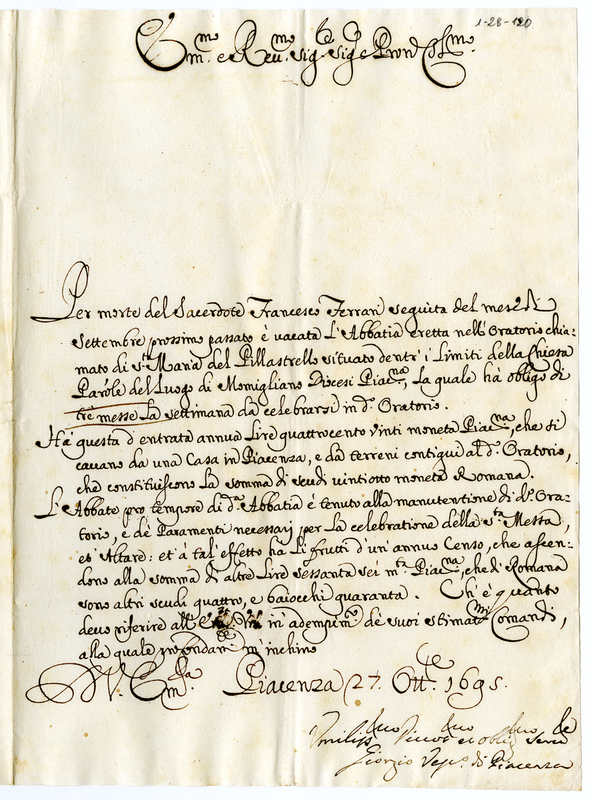 1-28-120
Em.mo e Reu.mo Sig.re Sig.re e Pron Col.mo
Per morte del Sacerdote Francesco Ferrari seguita del mese di
Settembre prossimo passato è vacata l'Abbatia eretta nell'Oratorio chia-
mato di S.ta Maria del Pillastrello situato dentr'i Limiti della Chiesa
Parole del Luogo di Momigliano Diocesi Piac.na, la quale hà obligo di
trè messe la settimana da celebrarsi in d.o Oratorio.
Hà questa d'entrata annua Lire quattrocento vinti moneta Piac.na, che si
cauano da una Casa in Piacenza, e da terreni contigui al d.o Oratorio,
che constituiscono la somma di scudi vintiotto moneta Romana.
L'Abbate pro tempore di d.a Abbatia è tenuto alla manutentione di d.o Ora-
torio, e de Paramenti necessarij per la celebratione della S.ta Messa,
et Altare: et à tal'effetto ha li frutti d'un'annuo Censo, che ascen-
dono alla somma di altre Lire sessanta sei m.ta Piac.na, che di Romana
sono altri scudi quattro, e baiocchi quaranta. Ch'è quanto
deuo riferire all' in adempim.to de suoi stimat.mi Comandi,
alla quale m'inchino
D. V. Em.za Piacenza 27. Ott.re 1695.
Humiliss.o Deuot.o et oblig.o Seru.re
Giorgio Vesc.o di Piacenza